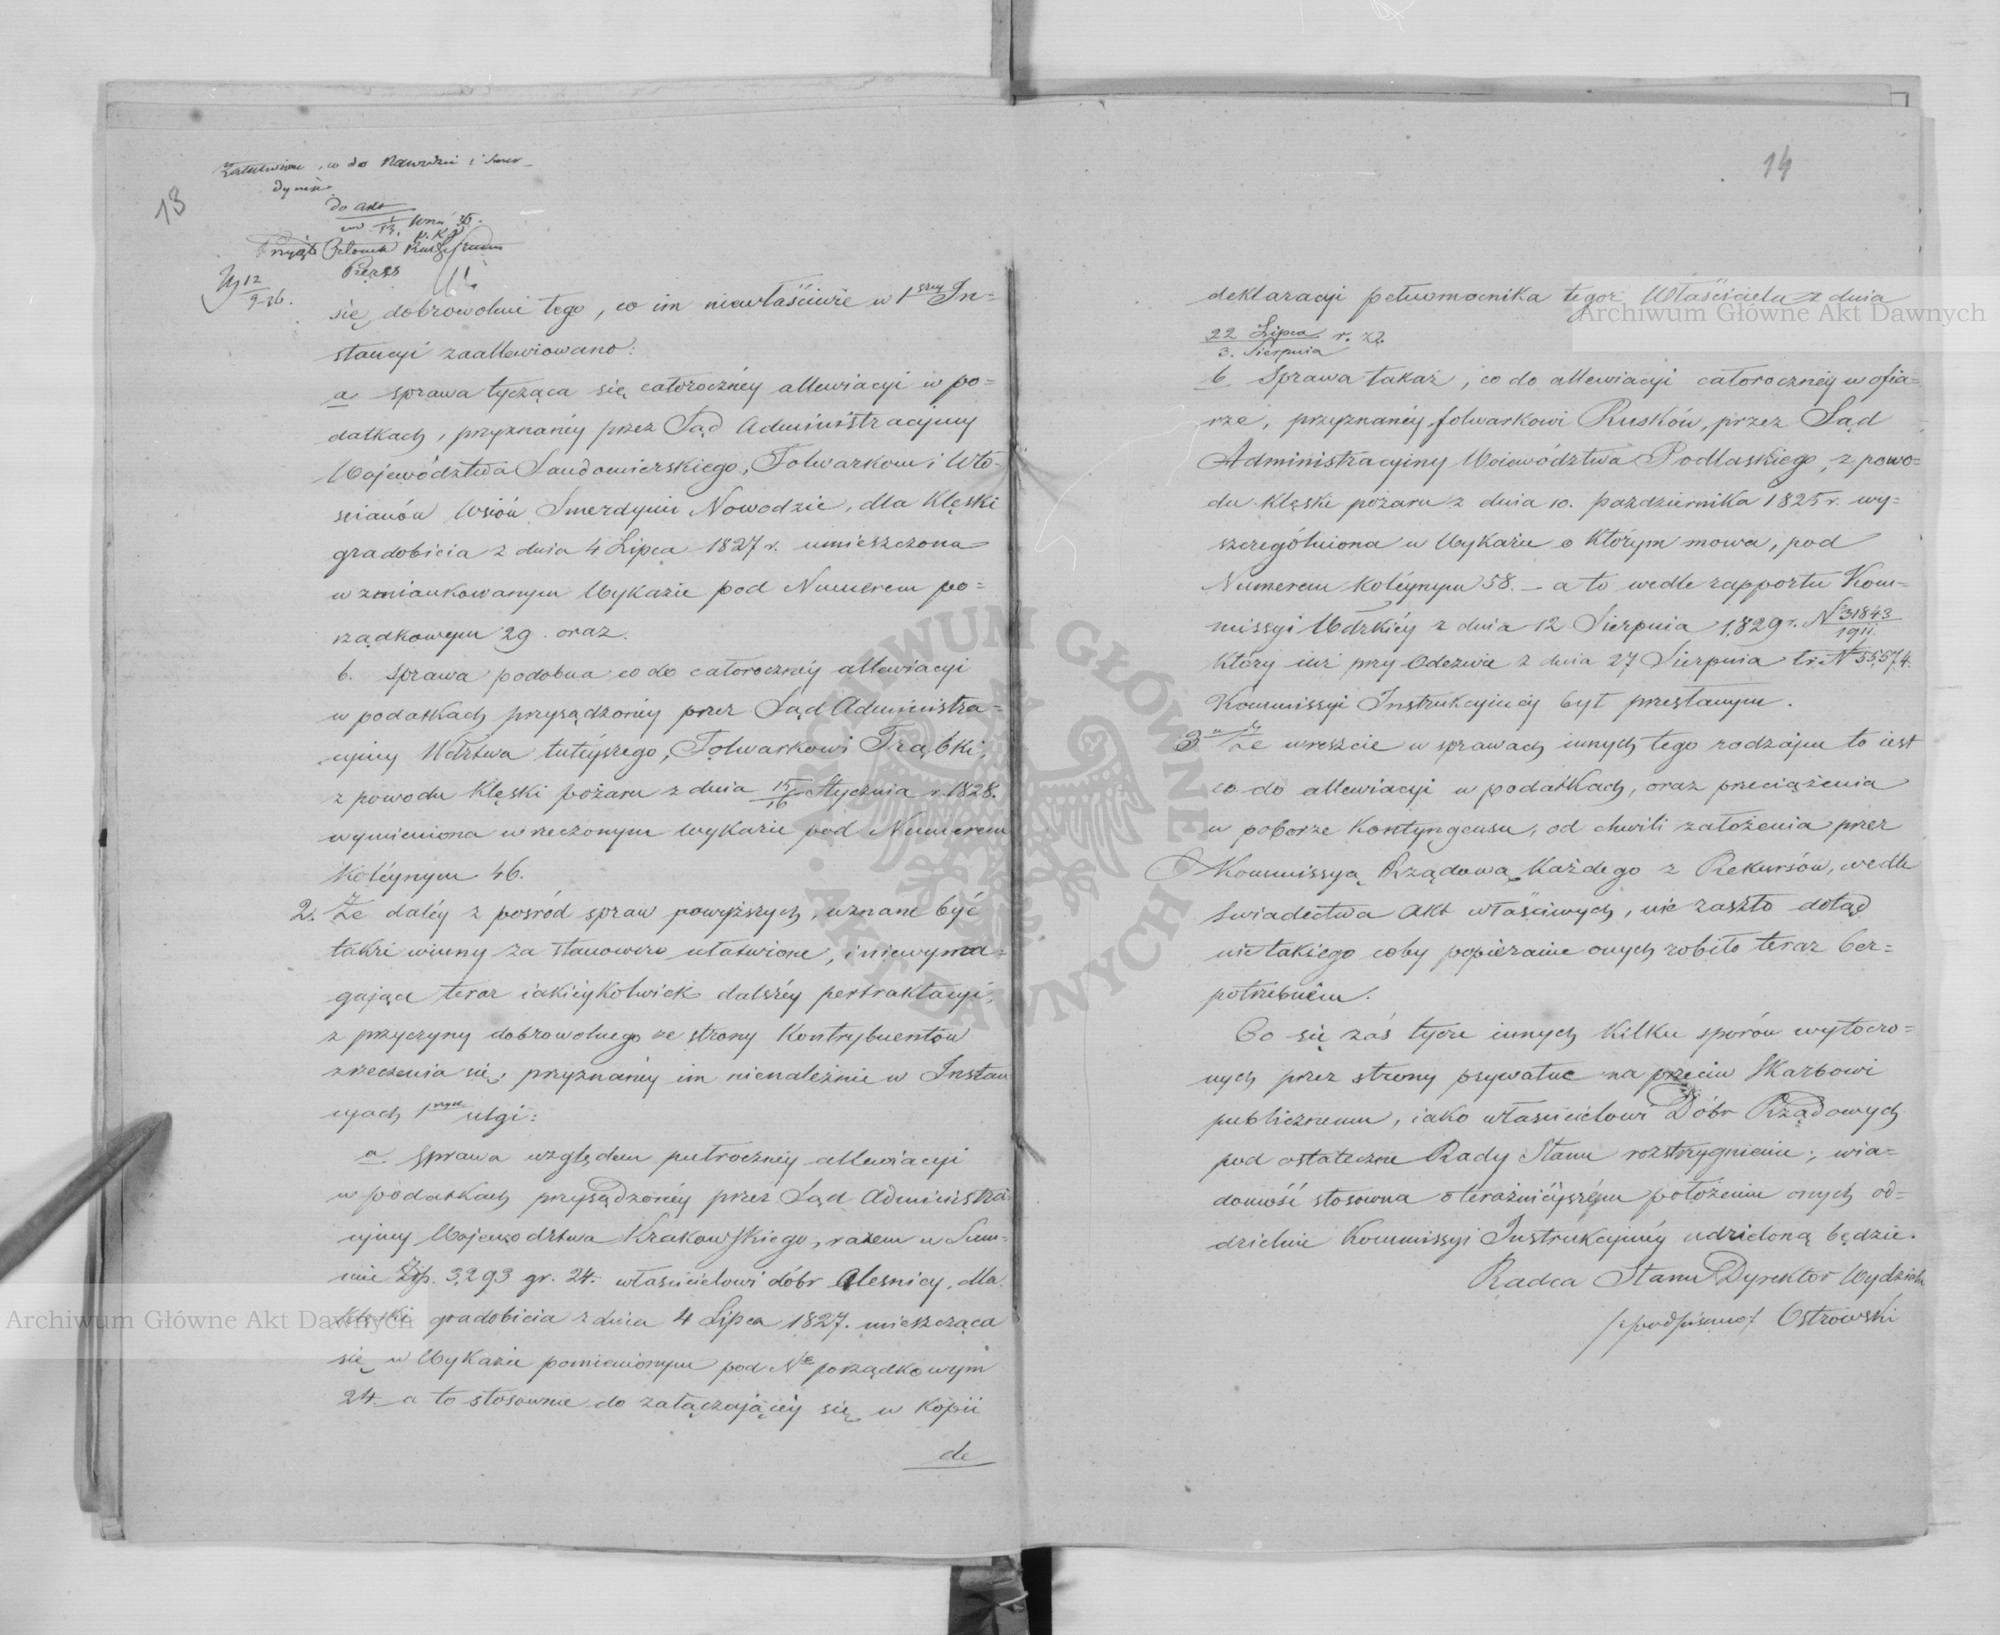 13
co do Nawodzie i Smer-
dynia
do akt
12
9 36.
się dobrowolnie tego, co im niewłaściwie w 1szey In=
stancyi zaallewiowano:
a sprawa tycząca się całorocznéy allewiacyi w po=
datkach, przyznanéy przez Sąd Administracyjny
Województwa Sandomierskiego, Folwarkom i Wło-
scianóm Wsiów Smerdyni Nowodzie, dla Klęski
gradobicia z dnia 4 Lipca 1827 r. umieszczona
w zmiankowanym Wykazie pod Numerem po=
rządkowym 29. oraz.
b. sprawa podobna co do całorocznéy allewiacyi
w podatkach przysądzonéy przez Sąd Administra=
cyjny Wdztwa tutéyszego, Folwarkowi Trąbki,
z powodu Klęski pożaru z dnia 15/16 Stycznia r. 1828.
wymieniona w rzeczonym Wykazie pod Numerem
Koléynym 46.
2. Że daléy z pośród spraw powyższych, uznane być
także winny za stanowczo ułatwione, i niewyma=
gające teraz iakieykolwiek dalszéy pertraktacyi,
z przyczyny dobrowolnego ze strony Kontrybuentów
zrzeczenia się, przyznanéy im nienależnie w Instan
cyach 1wszych ulgi:
a sprawa względem półrocznéy allewiacyi
w podatkach przysądzonéy przez Sąd Administra
cyjny Województwa Krakowskiego, razem w Sum=
mie Złp. 3,293 gr. 24. właścicielowi dóbr Olesnicy, dla
Klęski gradobicia z dnia 4 Lipca 1827. mieszcząca
się w Wykazie pomienionym pod Nr porządkowym
24. a to stosownie do załączającéy się w Kopii
de
14
deklaracyi pełnomocnika tegoż Właściciela z dnia
22 Lipca / 3. Sierpnia r. z.
b Sprawa takaż, co do allewiacyi całorocznéy w ofia=
rze, przyznanéy folwarkowi Rusków, przez Sąd
Administracyiny Woiewództwa Podlaskiego, z powo=
du klęski pożaru z dnia 10. Października 1825 r. wy=
szczególniona w Wykazie o którym mowa, pod
Numerem koléynym 58. – a to wedle rapportu Kom=
missyi Wdzkiéy z dnia 12 Sierpnia 1829 r. N 31843/1911.
który iuż przy Odezwie z dnia 27 Sierpnia t.r. N 55,574.
Kommissyi Instrukcyinéy był przesłanym.
3 Że wreszcie w sprawach innych tego rodzaju to iest
co do allewiacyi w podatkach, oraz przeciążenia
w poborze Kontyngensu, od chwili założenia przez
Kommissyą Rządową każdego z Rekursów, wedle
Świadectwa Akt właściwych, nie zaszło dotąd
nic takiego coby popieranie onych robiło teraz bez=
potrzebném.
Co się zaś tycze innych kilku sporów wytoczo=
nych przez strony prywatne na przeciw Skarbowi
publicznemu, iako właścicielowi Dóbr Rządowych
pod ostateczne Rady Stanu rozstrzygnienie; wia=
domość stosowna o teraźnieyszém położeniu onych od=
dzielnie Kommissyi Instrukcyinéy udzieloną będzie.
Radca Stanu Dyrektor Wydziału
/podpisano/ Ostrowski
Archiwum Główne Akt Dawnych
Archiwum Główne Akt Dawnych
ARCHIWUM GŁÓWNE AKT DAWNYCH